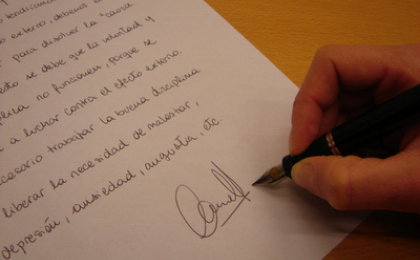 externo, debemos
para disolver la "causa
se debe que la voluntad y
no funcionen, porque se
a luchar contra el efecto externo.
trabajar la buena disciplina
liberar la necesidad de malestar,
depresión, ansiedad, angustia, etc.